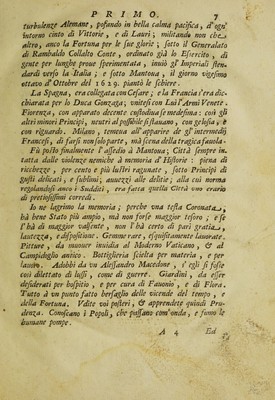 PRIMO. 7
turbulenze Alemane, posando in bella calma pacifica, d'ogn'
intorno cinto di Vittorie, e di Lauri; militando non che
altro, anco la Fortuna per sue glorie; sotto il Generalato
di Rambaldo Collalto Conte, ordinato già lo Esercito, di
gente per lunghe prove sperimentata, inviò gl'Imperiali sten-
dardi verso la Italia; e sotto Mantona, il giorno vigesimo
ottavo d'Ottobre del 1629. piantò le schiere.
La Spagna, era collegata con Cesare; e la Francia s'era dic-
chiarata per lo Duca Gonzaga; vnitesi con Lui l'Armi Venete.
Fiorenza, con apparato decente custodiua se medesima: così gli
altri minori Principi, neutri al possibile si stauano, con gelosia; e
con riguardo. Milano, temeua all'apparire de gl'intermedij
Francesi, di farsi non solo parte, mà scena della tragica fauola.
Fù posto finalmente l'assedio à Mantoua; Città sempre in-
tatta dalle violenze nemiche à memoria d'Historie: piena di
ricchezze, per cento e più lustri ragunate, sotto Principi di
gusti delicati, e sublimi, auuezzi alle delitie; alla cui norma
regolandosi anco i Sudditi, era fatta quella Città vno erario
di pretiosissimi corredi.
Io ne lagrimo la memoria; perche vna testa Coronata,
hà bene Stato più ampio, mà non forse maggior tesoro; e se
l'hà di maggior valsente, non l'hà certo di pari gratia,
lautezza, e dispositione. Gemme rare, esquisitamente lauorate.
Pitture, da muouer inuidia al Moderno Vaticano, & al
Campidoglio antico. Bottiglieria scielta per materia, e per
lauoro. Adobbi da vn Alessandro Macedone, s'egli fosse
così dilettato di lussi, come di guerre. Giardini, da esser
desiderati per hospitio, e per cura di Fauonio, e di Flora.
Tutto à vn punto fatto bersaglio delle vicende del tempo, e
della Fortuna. Vdite voi posteri, & apprendete quindi Pru-
denza. Conoscano i Popoli, che passano com'onda, e fumo le
humane pompe.
A 4 Ed